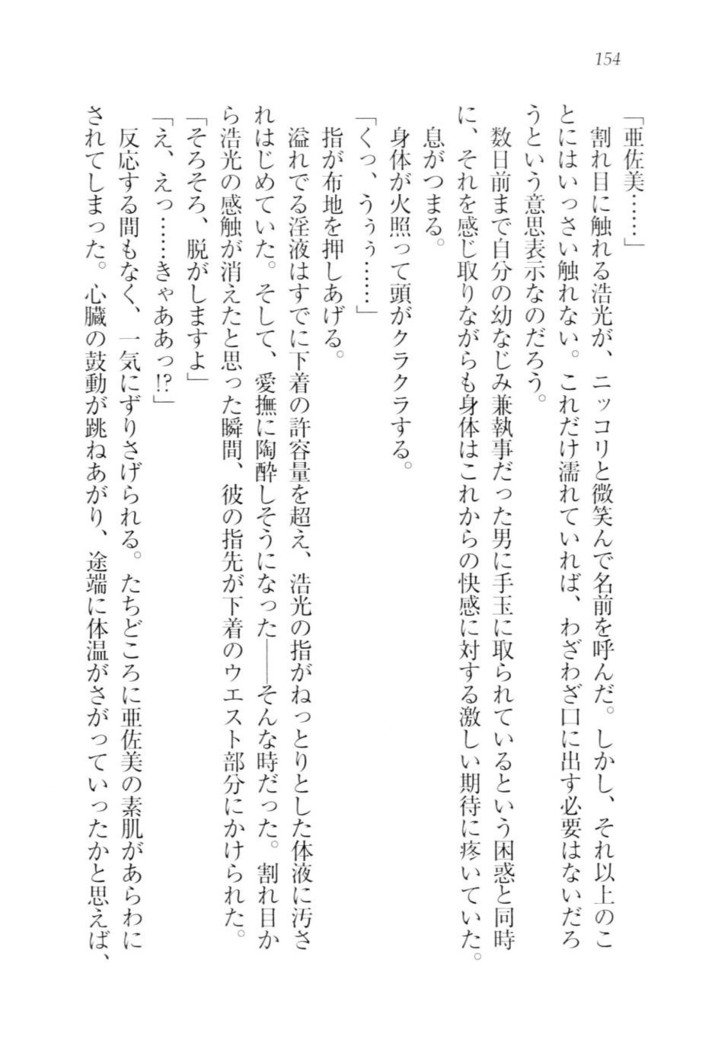 154
「亜佐美……」
割れ目に触れる浩光が、ニッコリと微笑んで名前を呼んだ。しかし、それ以上のこ
とにはいっさい触れない。これだけ濡れていれば、わざわざ口に出す必要はないだろ
うという意思表示なのだろう。
数日前まで自分の幼なじみ兼執事だった男に手玉に取られているという困惑と同時
に、それを感じ取りながらも身体はこれからの快感に対する激しい期待に疼いていた。
息がつまる。
身体が火照って頭がクラクラする。
「くっ、うぅぅ……」
指が布地を押しあげる。
溢れでる淫液はすでに下着の許容量を超え、浩光の指がねっとりとした体液に汚さ
れはじめていた。そして、愛撫に陶酔しそうになった――そんな時だった。割れ目か
ら浩光の感触が消えたと思った瞬間、彼の指先が下着のウエスト部分にかけられた。
「そろそろ、脱がしますよ」
「え、えっ……きゃああっ!?」
反応する間もなく、一気にずりさげられる。たちどころに亜佐美の素肌があらわに
されてしまった。心臓の鼓動が跳ねあがり、途端に体温がさがっていったかと思えば、